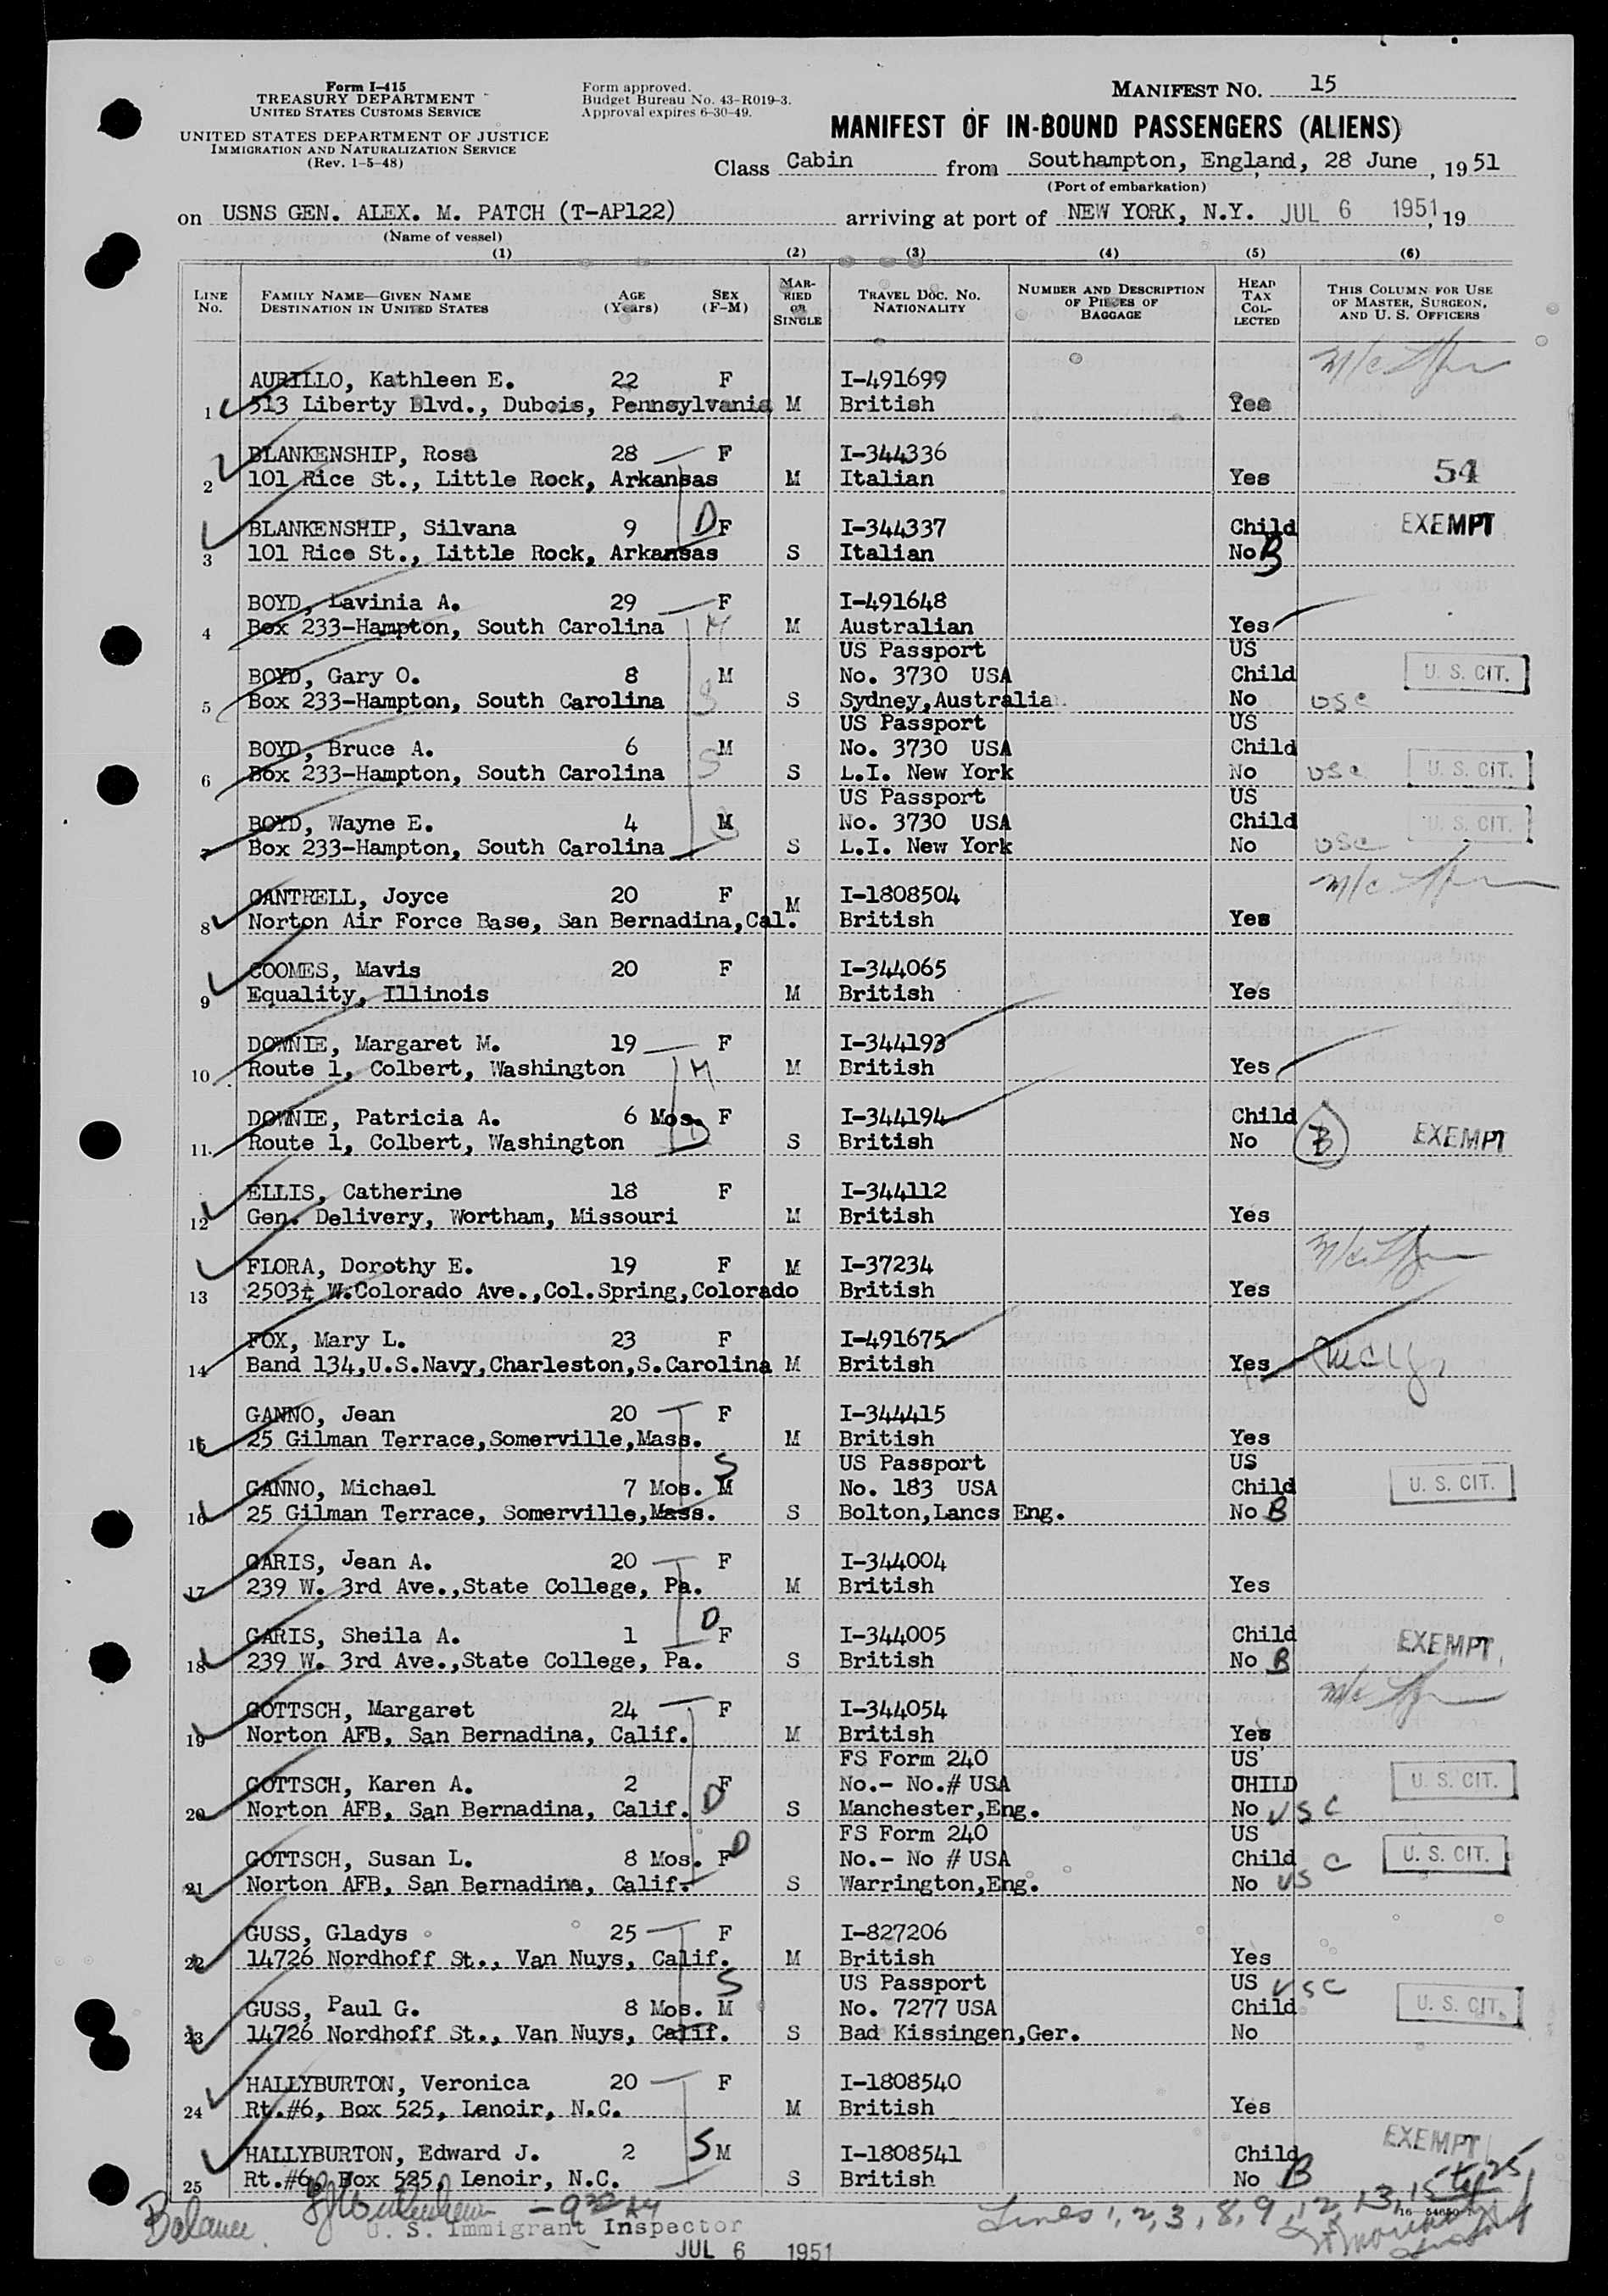 Form I-415
TREASURY DEPARTMENT
UNITED STATES CUSTOMS SERVICE
UNITED STATES DEPARTMENT OF JUSTICE
IMMIGRATION AND NATURALIZATION SERVICE
(Rev. 1-5-48)
Form approved.
Budget Bureau No. 43-R019-3.
Approval expires 6-30-49.
MANIFEST NO. 15
MANIFEST OF IN-BOUND PASSENGERS (ALIENS)
Class Cabin from Southampton, England, 28 June, 1951
(Port of embarkation)
on USNS GEN. ALEX. M. PATCH (T-AP122) arriving at port of NEW YORK, N.Y. JUL 6 1951, 19
(Name of vessel)
(1) (2) (3) (4) (5) (6)
LINE No. FAMILY NAME—GIVEN NAME DESTINATION IN UNITED STATES AGE (Years) SEX (F-M) MARRIED OR SINGLE TRAVEL DOC. NO. NATIONALITY NUMBER AND DESCRIPTION OF PIECES OF BAGGAGE HEAD TAX COLLECTED THIS COLUMN FOR USE OF MASTER, SURGEON, AND U. S. OFFICERS
AURILLO, Kathleen E. 22 F I-491699
1 513 Liberty Blvd., Dubois, Pennsylvania M British Yes
BLANKENSHIP, Rosa 28 F I-344336
2 101 Rice St., Little Rock, Arkansas M Italian Yes 54
BLANKENSHIP, Silvana 9 D F I-344337 Child EXEMPT
3 101 Rice St., Little Rock, Arkansas S Italian No B
BOYD, Lavinia A. 29 F I-491648
4 Box 233-Hampton, South Carolina M M Australian Yes
US Passport US
BOYD, Gary O. 8 M No. 3730 USA Child U. S. CIT.
5 Box 233-Hampton, South Carolina S S Sydney,Australia No USC
US Passport US
BOYD, Bruce A. 6 M No. 3730 USA Child
6 Box 233-Hampton, South Carolina S S L.I. New York No USC U. S. CIT.
US Passport US
BOYD, Wayne E. 4 M No. 3730 USA Child U. S. CIT.
7 Box 233-Hampton, South Carolina S L.I. New York No USC
CANTRELL, Joyce 20 F M I-1808504
8 Norton Air Force Base, San Bernadina,Cal. British Yes
COOMES, Mavis 20 F I-344065
9 Equality, Illinois M British Yes
DOWNIE, Margaret M. 19 F I-344193
10 Route 1, Colbert, Washington M M British Yes
DOWNIE, Patricia A. 6 Mos. F I-344194 Child
11. Route 1, Colbert, Washington D S British No B EXEMPT
ELLIS, Catherine 18 F I-344112
12 Gen. Delivery, Wortham, Missouri M British Yes
FLORA, Dorothy E. 19 F M I-37234
13 2503½ W.Colorado Ave.,Col.Spring,Colorado British Yes
FOX, Mary L. 23 F I-491675
14 Band 134,U.S.Navy,Charleston,S.Carolina M British Yes
GANNO, Jean 20 F I-344415
15 25 Gilman Terrace,Somerville,Mass. M British Yes
US Passport US
GANNO, Michael 7 Mos. S M No. 183 USA Child U. S. CIT.
16 25 Gilman Terrace, Somerville,Mass. S Bolton,Lancs Eng. No B
GARIS, Jean A. 20 F I-344004
17 239 W. 3rd Ave.,State College, Pa. M British Yes
GARIS, Sheila A. 1 D F I-344005 Child EXEMPT
18 239 W. 3rd Ave.,State College, Pa. S British No B
GOTTSCH, Margaret 24 F I-344054
19 Norton AFB, San Bernadina, Calif. M British Yes
FS Form 240 US
GOTTSCH, Karen A. 2 F No.- No.# USA CHILD U. S. CIT.
20 Norton AFB, San Bernadina, Calif. D S Manchester,Eng. No USC
FS Form 240 US
GOTTSCH, Susan L. 8 Mos. F D No.- No # USA Child U. S. CIT.
21 Norton AFB, San Bernadina, Calif. S Warrington,Eng. No USC
GUSS, Gladys 25 F I-827206
22 14726 Nordhoff St., Van Nuys, Calif. M British Yes
US Passport US USC
GUSS, Paul G. 8 Mos. S M No. 7277 USA Child U. S. CIT.
23 14726 Nordhoff St., Van Nuys, Calif. S Bad Kissingen,Ger. No
HALLYBURTON, Veronica 20 F I-1808540
24 Rt.#6, Box 525, Lenoir, N.C. M British Yes
HALLYBURTON, Edward J. 2 S M I-1808541 Child EXEMPT
25 Rt.#6, Box 525, Lenoir, N.C. S British No B
Balance
Lines 1, 2, 3, 8, 9, 12, 13, 15 to 25
U. S. Immigrant Inspector
JUL 6 1951